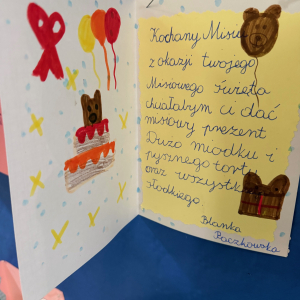 Kochany Misiu
z okazji twojego
Misiowego święta
chciałabym ci dać
misiowy prezent
Dużo miodku i
pysznego tortu
oraz wszystko
słodkiego.
Blanka
Baczkowska